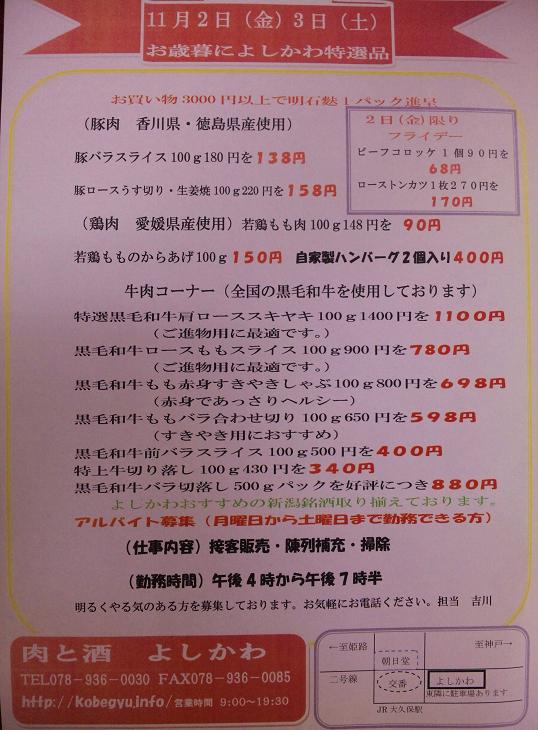 11月2日（金）3日（土）
お歳暮によしかわ特選品
お買い物3000円以上で明石麩1パック進呈
（豚肉　香川県・徳島県産使用）
豚バラスライス100g180円を138円
豚ロースうす切り・生姜焼100g220円を158円
2日(金)限り
フライデー
ビーフコロッケ1個90円を
68円
ローストンカツ1枚270円を
170円
（鶏肉　愛媛県産使用）若鶏もも肉100g148円を　90円
若鶏もものからあげ100g150円　自家製ハンバーグ2個入り400円
牛肉コーナー（全国の黒毛和牛を使用しております）
特選黒毛和牛肩ローススキヤキ100g1400円を1100円
（ご進物用に最適です。）
黒毛和牛ロースももスライス100g900円を780円
（ご進物用に最適です。）
黒毛和牛もも赤身すきやきしゃぶ100g800円を698円
（赤身であっさりヘルシー）
黒毛和牛ももバラ合わせ切り100g650円を598円
（すきやき用におすすめ）
黒毛和牛前バラスライス100g500円を400円
特上牛切り落し100g430円を340円
黒毛和牛バラ切落し500gパックを好評につき880円
よしかわおすすめの新潟銘酒取り揃えております。
アルバイト募集（月曜日から土曜日まで勤務できる方）
（仕事内容）接客販売・陳列補充・掃除
（勤務時間）午後4時から午後7時半
明るくやる気のある方を募集しております。お気軽にお電話ください。担当　吉川
肉と酒　よしかわ
TEL078-936-0030 FAX078-936-0085
http://kobegyu.info/営業時間 9:00〜19:30
←至姫路
至神戸→
朝日堂
二号線
交番
よしかわ
東隣に駐車場あります
JR大久保駅